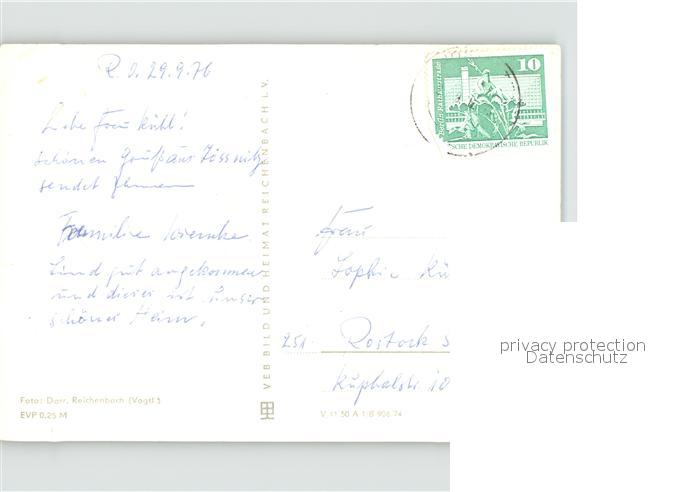 R. d. 29.9.76
Liebe Frau Kühl!
schönen Gruß aus Jössnitz
sendet Ihnen
Familie
Sind gut angekommen
und dieses ist unser
schönes Heim.
VEB BILD UND HEIMAT REICHENBACH I.V.
Foto: Darr, Reichenbach (Vogtl.)
EVP 0,25 M
10
Berlin, Rathausstraße
DEMOKRATISCHE REPUBLIK
Frau
Sophie Kü
251
Rostock
Kuphalstr 10
V 11 50 A 1/B 906/74
privacy protection
Datenschutz